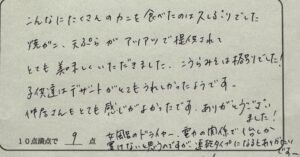 こんなにたくさんのカニを食べたのは久しぶりでした
焼がに、天ぷらが アツアツで提供されて
とても美味しくいただきました。こうらみそは格別でした!
子供達はデザートがとてもうれしかったようです。
仲居さんもとても感じがよかったです。ありがとうござい
ました!
10点満点で 9 点
お風呂のドライヤー、電力の関係で1台しか
置けないと思うのですが、連続タイヤになるとありがたい
です